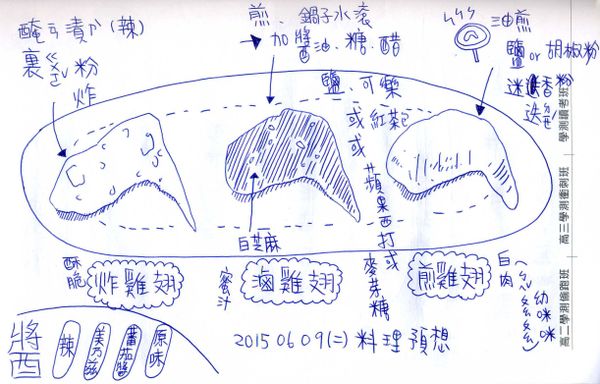 醃ㄐㄧ漬ㄗˋ(辣)
裹ㄍㄨㄛˇ粉
炸
煎、鍋子水滾
加醬油、糖、醋
鹽、可樂
或紅茶
或蘋果西打或
麥芽糖
油煎
鹽or胡椒粉
迷迭香粉
迭
白芝麻
酥脆
炸雞翅
蜜汁
滷雞翅
煎雞翅
白肉
幼咪咪
將酉
辣
美乃滋
番茄醬
原味
2015 06 09(二) 料理預想
學測讀書班
高三學測衝刺班
高二學測領跑班